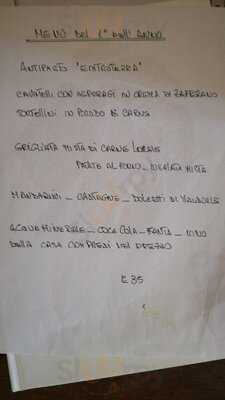 MENÙ DEL 1° DELL'ANNO
ANTIPASTO "ENTROTERRA"
CAVATELLI CON ASPARAGI IN CREMA DI ZAFFERANO
TORTELLINI IN BRODO DI CARNE
GRIGLIATA MISTA DI CARNE LOCALE
PATATE AL FORNO _ INSALATA MISTA
MANDARINI _ CASTAGNE _ DOLCETTI DI NATALE
ACQUA MINERALE _ COCA COLA _ FANTA _ VINO
DELLA CASA COMPRESI NEL PREZZO
€ 35